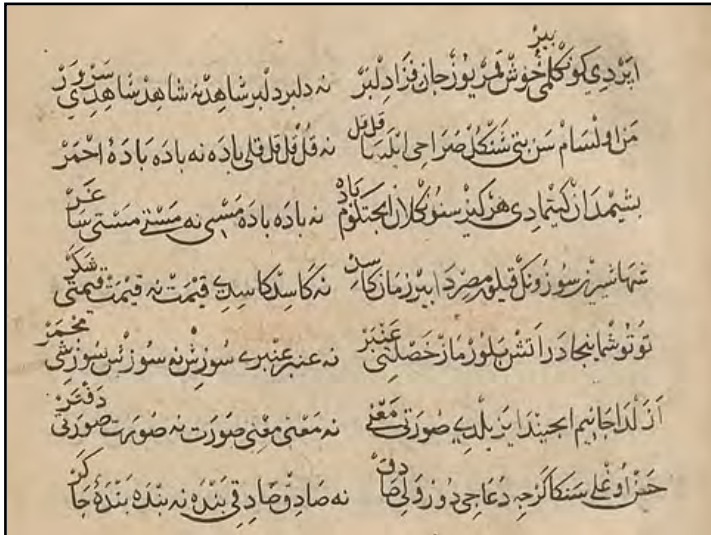 ابردي كوكلمي بير خوش قمر يوز جان فزا دلبر نه دلبر دلبر شاهد نه شاهد شاهدي سرور
من اولسام سن بتي شنكل صراحي ايلمه قل قل نه قل قل قل قلي باده نه باده بادۀ احمر
بشيمدان كيتمادي هركيز سنوكلان ايجتكوم باده نه باده بادۀ مستي نه مستي مستي ساغر
شها شيرين سوزونك قيلور مصردا بير زمان كاسد نه كاسد كاسدي قيمت نه قيمت قيمتي شكر
توتوشماينجا در آتش بلورماز خصلتي عنبر نه عنبر عنبري سوزش نه سوزش سوزشي مجمر
ازلدا جانيم ايجيندا يزيلدي صورتي معني نه معني معني صورت نه صورت صورتي دفتر
حسن اوغلي سنكا كرجه دعاجي دور ولي صادق نه صادق صادقي بنده نه بنده بندۀ جاكر